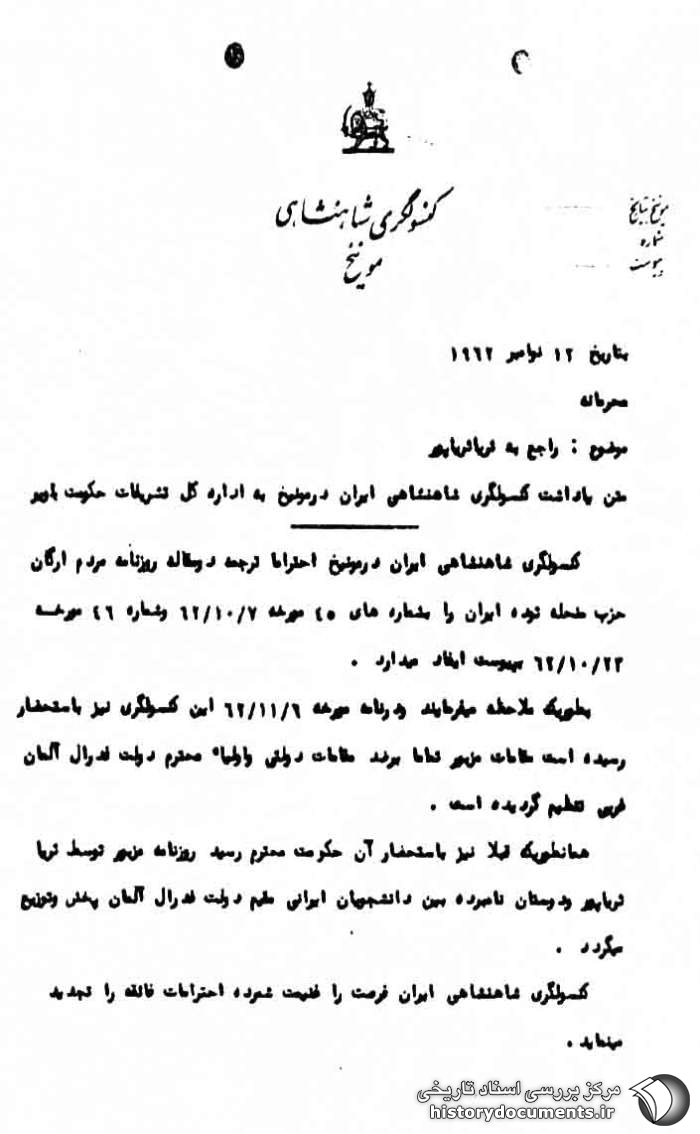 کنسولگری شاهنشاهی
مونیخ
مونیخ بتاریخ
شماره
پیوست
بتاریخ ۱۲ نوامبر ۱۹۶۲
محرمانه
موضوع : راجع به ثریاثریاپور
متن یاداشت کنسولگری شاهنشاهی ایران درمونیخ به اداره کل تشریفات حکومت باویر
کنسولگری شاهنشاهی ایران درمونیخ احتراما ترجمه دومقاله روزنامه مردم ارگان
حزب منحله توده ایران را بشماره های ۴۵ مورخه ۶۲/۱۰/۷ وشماره ۴۶ مورخسه
۶۲/۱۰/۲۳ بپیوست ایفاد میدارد .
بطوریکه ملاحظه میفرمایند ودرنامه مورخه ۶۲/۱۱/۶ این کنسولگری نیز باستحضار
رسیده است مقامات مزبور تماما برضد مقامات دولتی واولیاء محترم دولت فدرال آلمان
غربی تنظیم گردیده است .
همانطوریکه قبلا نیز باستحضار آن حکومت محترم رسید روزنامه مزبور توسط ثریا
ثریاپور ودوستان نامبرده بین دانشجویان ایرانی مقیم دولت فدرال آلمان پخش وتوزیع
میگردد .
کنسولگری شاهنشاهی ایران فرصت را غنیمت شمرده احترامات فائقه را تجدید
مینماید .
مرکز بررسی اسناد تاریخی
historydocuments.ir